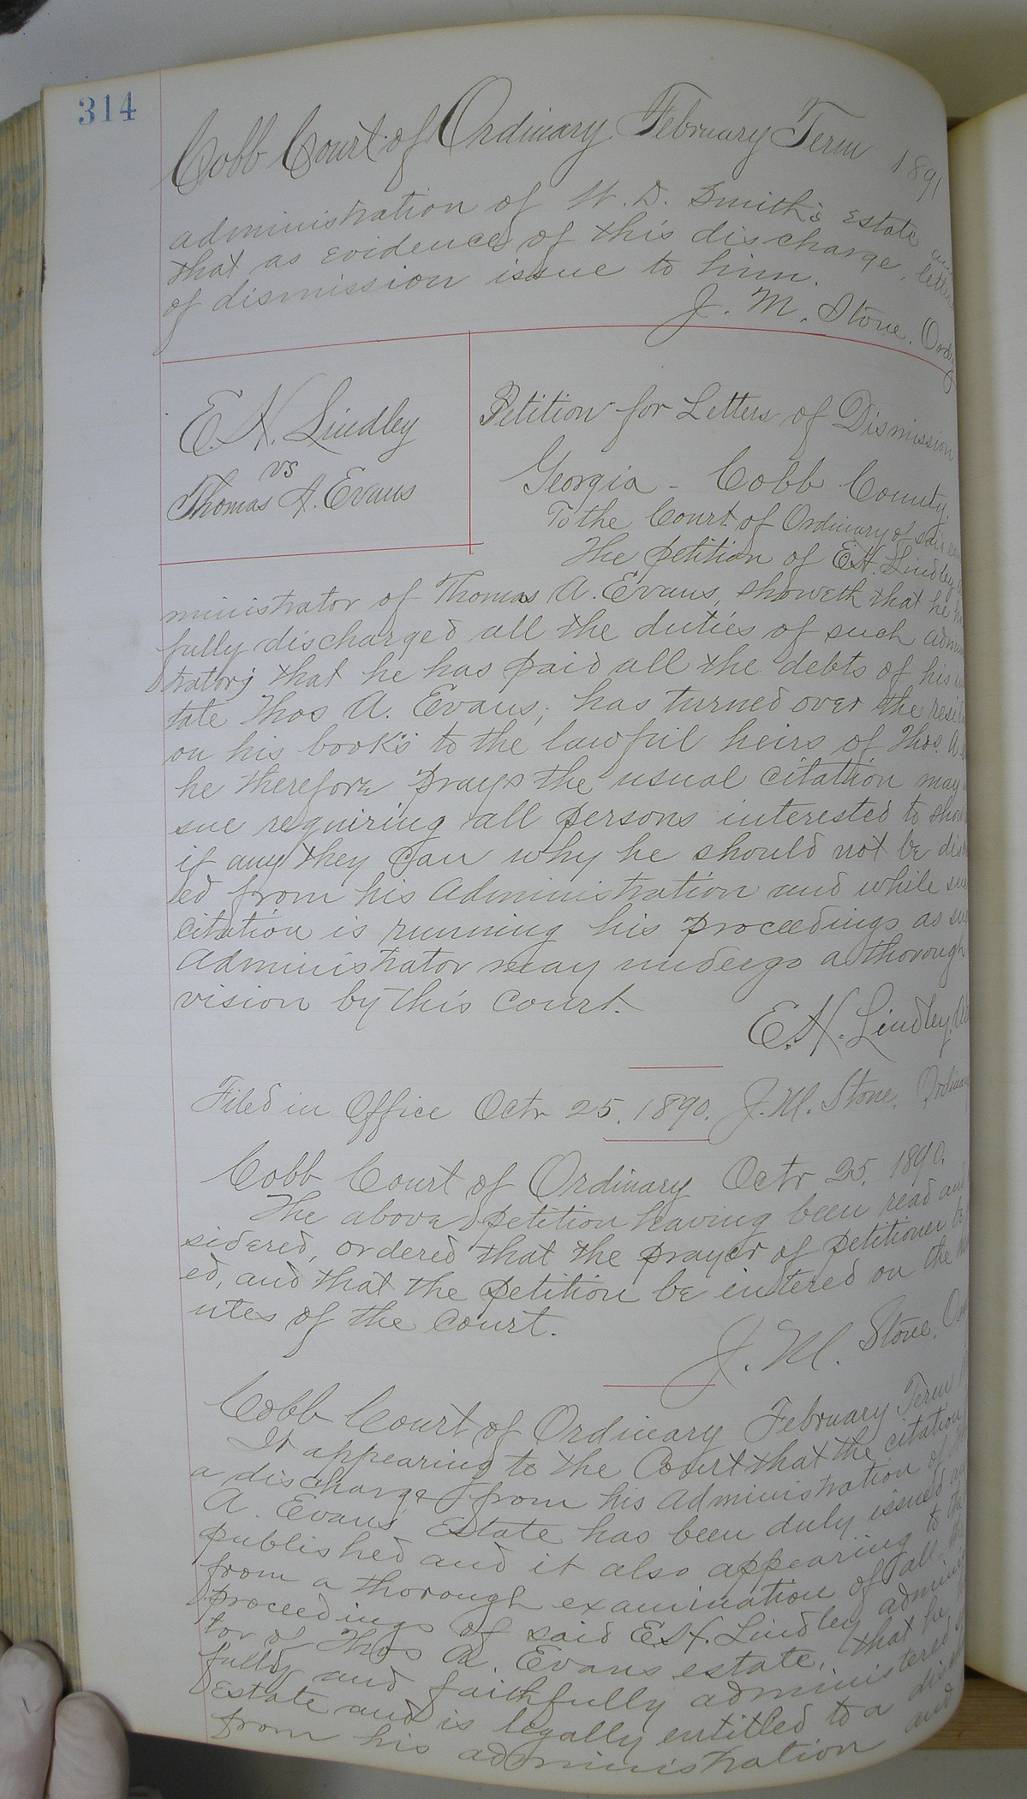 314
Cobb Court of Ordinary February Term 1891
administration of W. D. Smith's Estate and
that as evidence of this discharge, letters
of dismission issue to him.
J. M. Stone. Ordy
E. H. Lindley
vs
Thomas A. Evans
Petition for Letters of Dismission
Georgia - Cobb County.
To the Court of Ordinary of said
The petition of E.H. Lindley
ministrator of Thomas A. Evans, showeth that he
fully discharged all the duties of such admin
trator; that he has paid all the debts of his
tate Thos A. Evans; has turned over the resi
on his books to the lawful heirs of Thos. A.
he therefore prays the usual citation may
sue requiring all persons interested to show
if any they can why he should not be dis
ed from his Administration and while su
citation is running his proceedings as su
Administrator may undergo a thorough
vision by this Court.
E. H. Lindley, Ad
Filed in Office Octr 25. 1890. J. M. Stone. Ordinary
Cobb Court of Ordinary Octr 25. 1890.
The above petition having been read and
sidered, ordered that the prayer of petitioner be
ed, and that the petition be intered on the
utes of the court.
J. M. Stone. Ord
Cobb Court of Ordinary February Term
It appearing to the Court that the citation
a discharge from his administration of
A. Evans' Estate has been duly issued
published and it also appearing to the
from a thorough examination of all
proceedings of said E.H. Lindley adminis
tor of Thos A. Evans estate, that he
fully and faithfully administered
Estate and is legally entitled to a dis
from his administration and